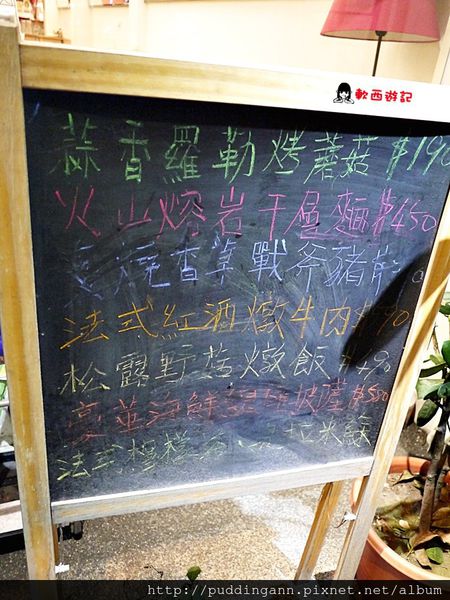 軟西遊記
蒜香羅勒烤蘑菇 $190
火山熔岩千層麵 $450
燒香草戰斧豬
法式紅酒燉牛肉 90
松露野菇燉飯 $490
豪華海鮮 披薩 $580
法式檸檬 拉米蘇
http://puddingann.pixnet.net/album